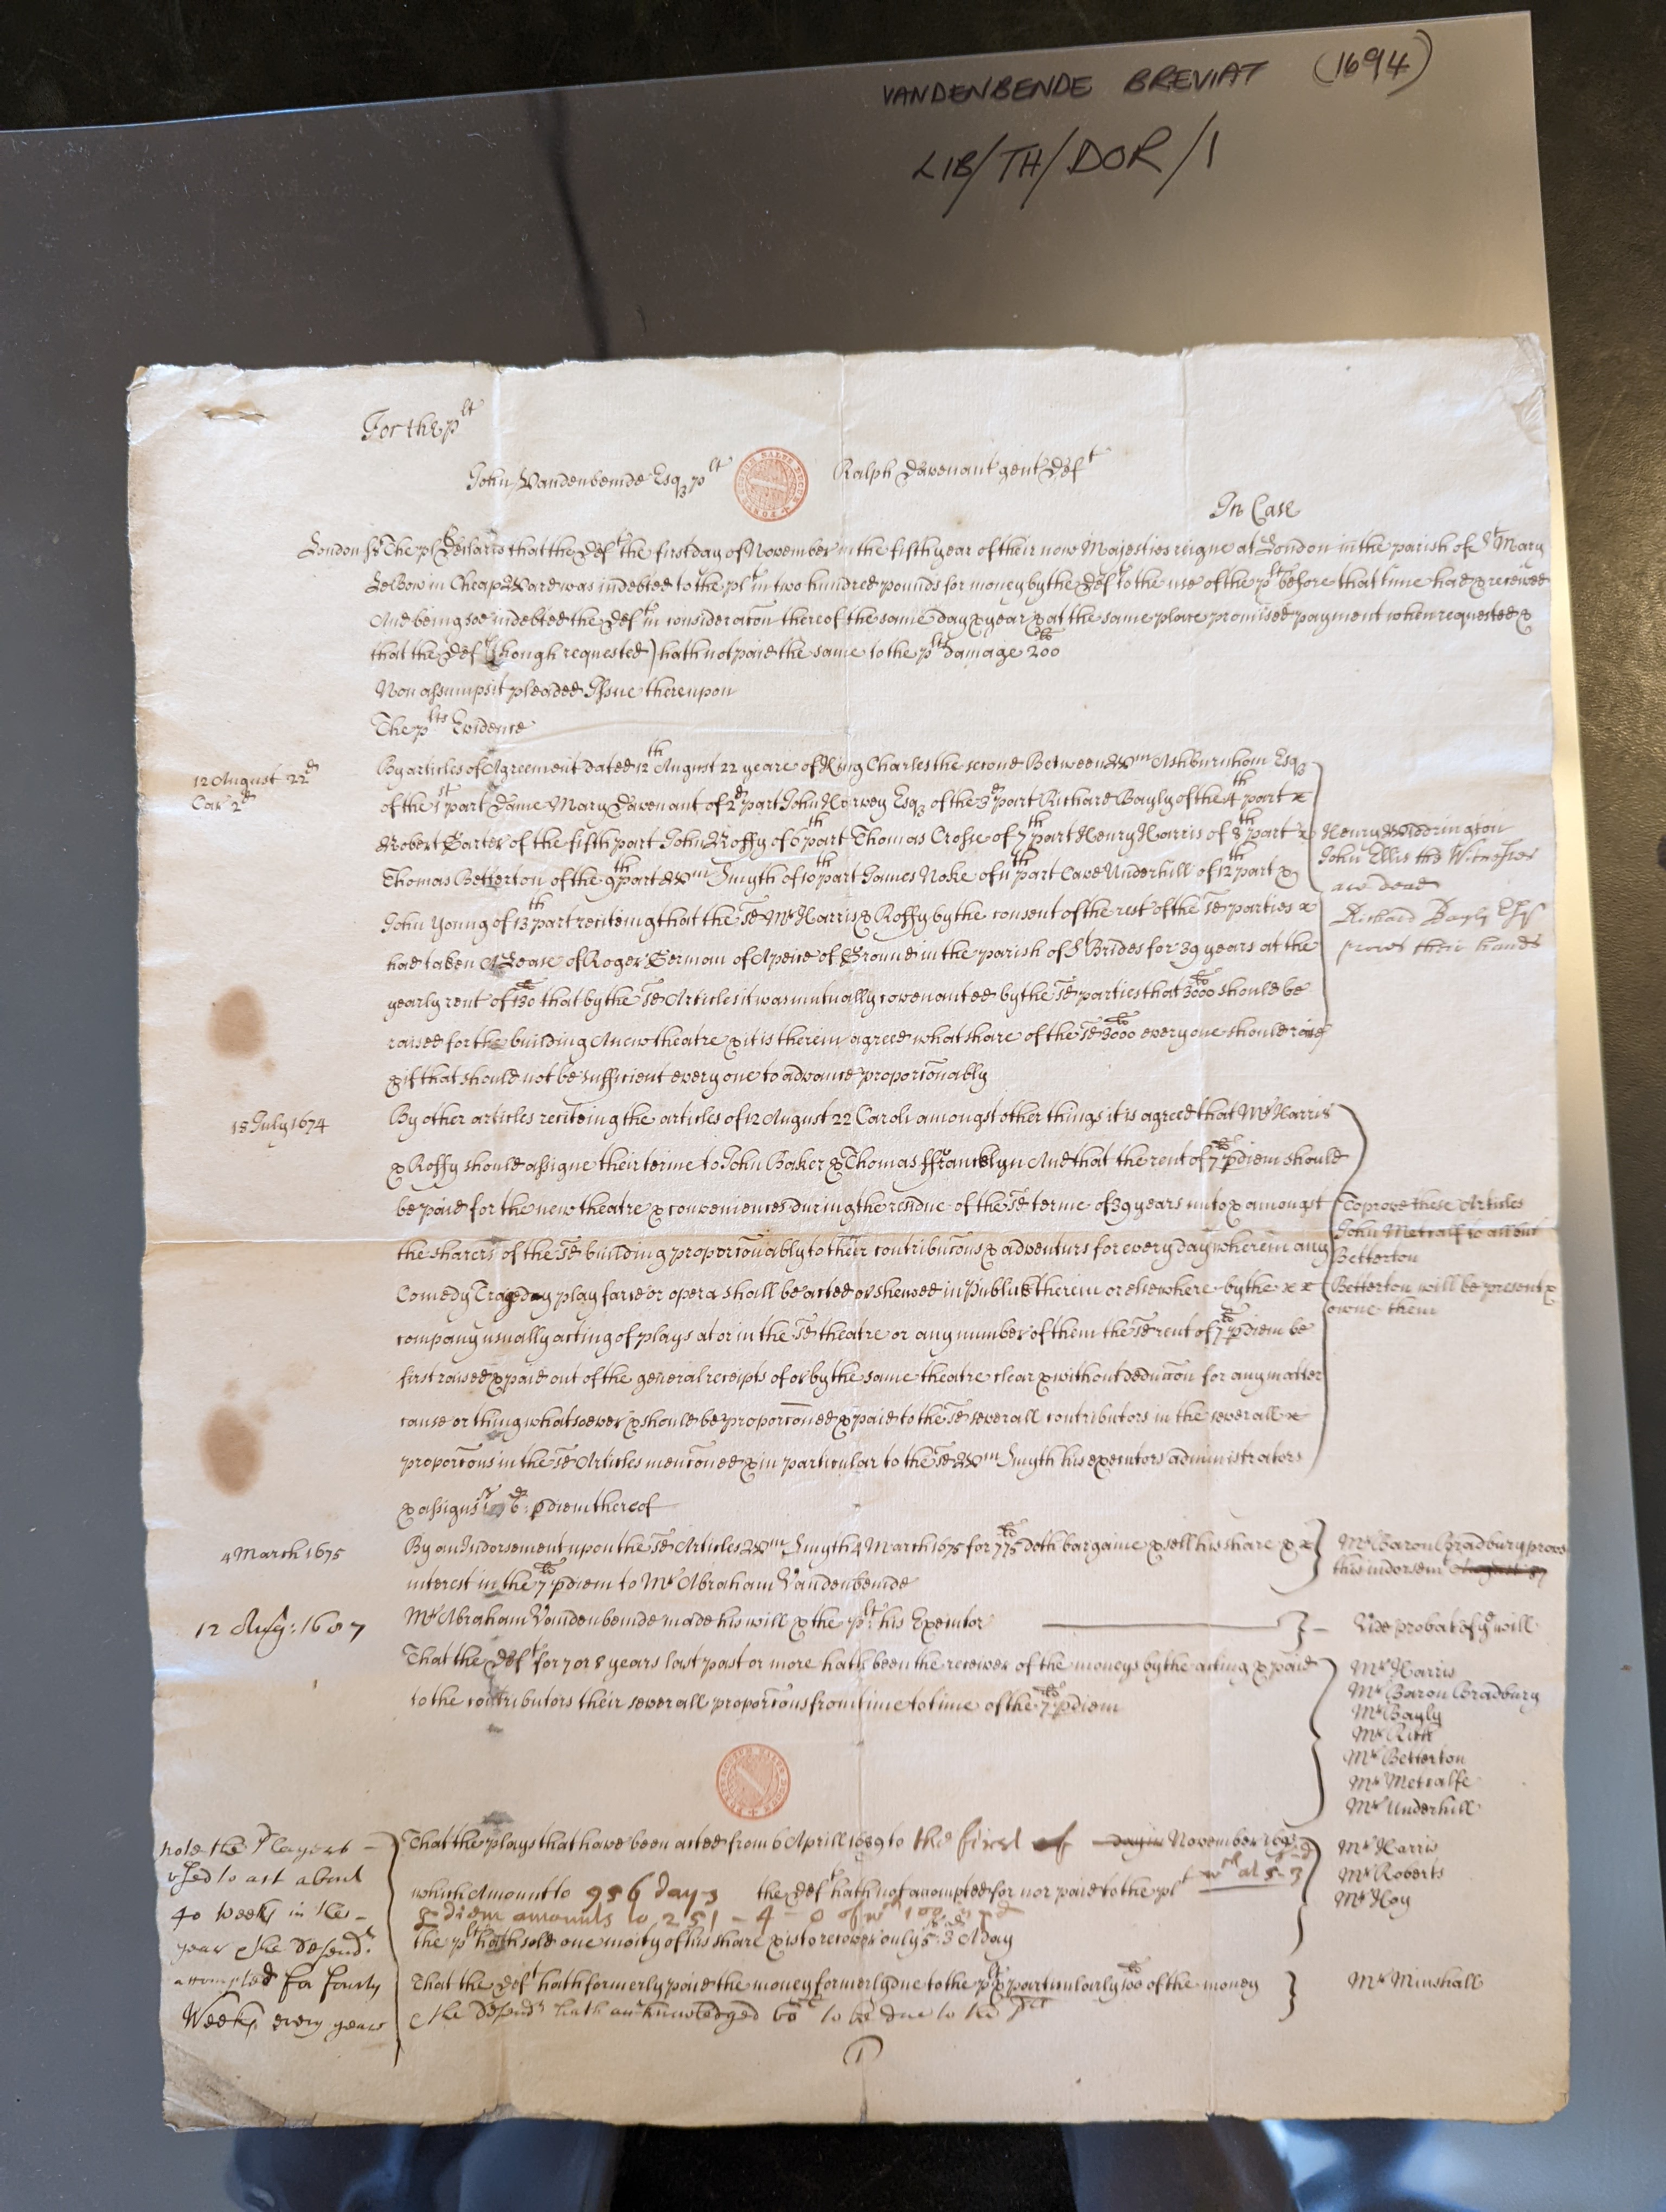 VANDENBENDE BREVIAT (1694)
LIB/TH/DOR/1
For the plt
John Vandenbemde Esqr plt Ralph Davenant gent Deft
In Case
London ss The plt Declares that the Deft the first day of November in the fifth year of their now Majesties reigne at London in the parish of St Mary
LeBow in Cheap Ward was indebted to the plt in two hundred pounds for money by the Deft to the use of the plt before that time had & received
And being soe indebted the Deft in consideracon thereof the same day & year & at the same place promised payment when requested &
that the Deft (though requested) hath not paid the same to the plts damage 200li
Non assumpsit pleaded Issue thereupon
The plts Evidence
12 August 22d
Car 2d
By articles of Agreement dated 12th August 22 yeare of King Charles the second Between Wm Ashburnham Esqr
of the 1st part Dame Mary Davenant of 2d part John Hervey Esqr of the 3d part Richard Bayly of the 4th part
Robert Carter of the fifth part John Roffy of 6th part Thomas Crosse of 7th part Henry Harris of 8th part
Thomas Betterton of the 9th part Wm Smyth of 10th part James Noke of 11th part Cave Underhill of 12th part &
John Young of 13th part reciteing that the sd Mr Harris & Roffy by the consent of the rest of the sd parties
had taken A Lease of Roger Jerman of A peice of Ground in the parish of St Brides for 39 years at the
yearly rent of 130li that by the sd Articles it was mutually covenanted by the sd parties that 3000li should be
raised for the building A new theatre & it is therein agreed what share of the sd 3000li every one should raise
& if that should not be sufficient every one to advance proporconably
Henry Widdrington
John Ellis the Witnesses
are dead
Richard Bayly Esqr
proves their hands
18 July 1674
By other articles reciteing the articles of 12 August 22 Caroli amongst other things it is agreed that Mr Harris
& Roffy should assigne their terme to John Baker & Thomas ffrancklyn And that the rent of 7li p diem should
be paid for the new theatre & conveniences during the residue of the sd terme of 39 years unto & amongst
the sharers of the sd building proporconably to their contribucons & adventurs for every day wherein any
Comedy Tragedy play farce or opera shall be acted or shewed in Publick therein or elsewhere by the
company usually acting of plays at or in the sd theatre or any number of them the sd rent of 7li p diem be
first raised & paid out of the generall receipts of or by the same theatre clear & without deduccon for any matter
cause or thing whatsoever & should be proporconed & paid to the sd severall contributors in the severall
proporcons in the sd Articles menconed & in particular to the sd Wm Smyth his executors administrators
& assigns 6d: p diem thereof
To prove these Articles
John Metcalf to all but
Betterton
Betterton will be present &
owne them
4 March 1675
By an Indorsement upon the sd Articles Wm Smyth 4 March 1675 for 775li doth bargaine & sell his share &
interest in the 7li p diem to Mr Abraham Vandenbemde
Mr Baron Bradbury proves
this indorsemt August 87
12 Aug: 1687
Mr Abraham Vandenbemde made his will & the plt his Executor
Vide probat of ye will
That the Deft for 7 or 8 years last past or more hath been the receiver of the moneys by the acting & paid
to the contributors their severall proporcons from time to time of the 7li p diem
Mr Harris
Mr Baron Bradbury
Mr Bayly
Mr Rich
Mr Betterton
Mr Metcalfe
Mr Underhill
note the Players
used to act about
40 weeks in the
year & the Defendt
accompted for fourty
Weeks every yeare
That the plays that have been acted from 6 Aprill 1689 to the first of day in November 1693
which Amount to 956 days the Deft hath not accompted for nor paid to the plt wch at 5s-3d
p diem amounts to 251-4-0 of wch 100 is pd
the plt hath sold one moity of his share & is to recover only 5s:3d A day
Mr Harris
Mr Roberts
Mr Hoy
That the Deft hath formerly paid the money formerly due to the plt & particularly 100li of the money
& the Defendt hath acknowledged 60li to be due to the plt
Mr Minshall